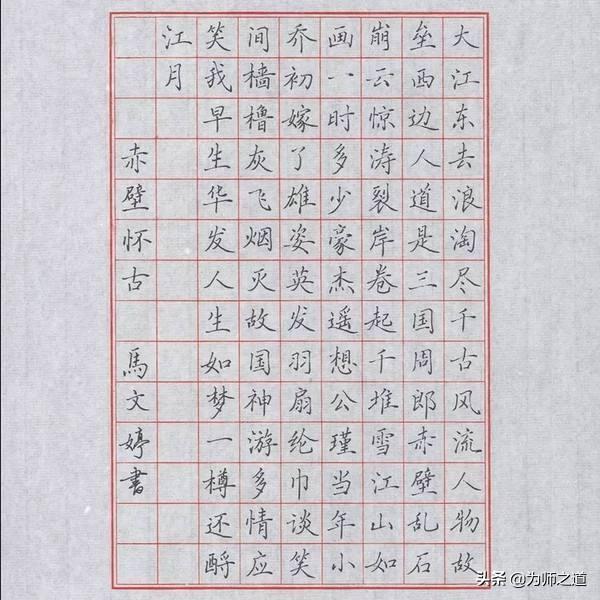 大江东去浪淘尽千古风流人物故
垒西边人道是三国周郎赤壁乱石
崩云惊涛裂岸卷起千堆雪江山如
画一时多少豪杰遥想公瑾当年小
乔初嫁了雄姿英发羽扇纶巾谈笑
间樯橹灰飞烟灭故国神游多情应
笑我早生华发人生如梦一樽还酹
江月
赤壁怀古 馬文婷書
头条 @为师之道